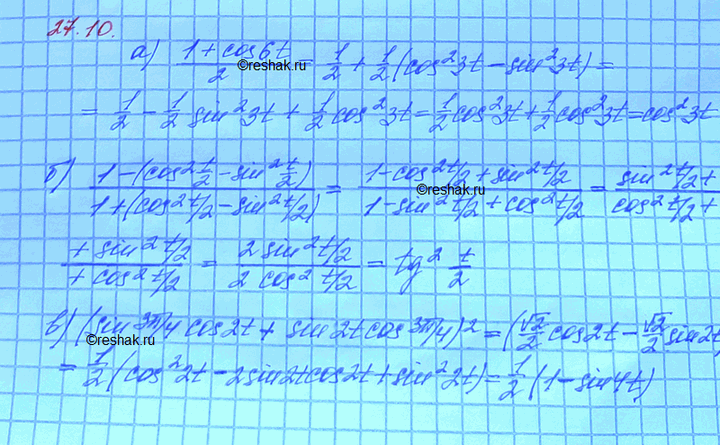 27.10.
а) (1+cos6t)/2 = 1/2 + 1/2(cos²3t − sin²3t) =
= 1/2 − 1/2 sin²3t + 1/2 cos²3t = 1/2 cos²3t + 1/2 cos²3t = cos²3t
б) (1−(cos² t/2 − sin² t/2))/(1+(cos² t/2 − sin² t/2)) = (1−cos² t/2 + sin² t/2)/(1−sin² t/2 + cos² t/2) = (sin² t/2 +)/(cos² t/2 +)
(+ sin² t/2)/(+ cos² t/2) = (2 sin² t/2)/(2 cos² t/2) = tg² t/2
в) (sin 3π/4 cos2t + sin2t cos 3π/4)² = (√2/2 cos2t − √2/2 sin2t
= 1/2 (cos²2t − 2sin2t cos2t + sin²2t) = 1/2 (1 − sin4t)
©reshak.ru
©reshak.ru
©reshak.ru